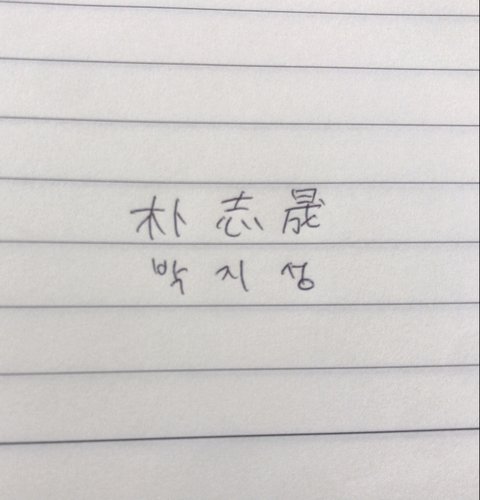 朴志晟
박지성